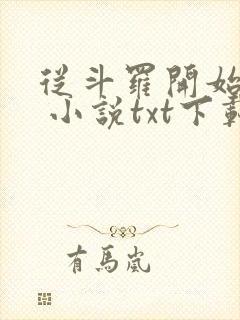 從斗羅開始
小說txt下載
有馬嵐